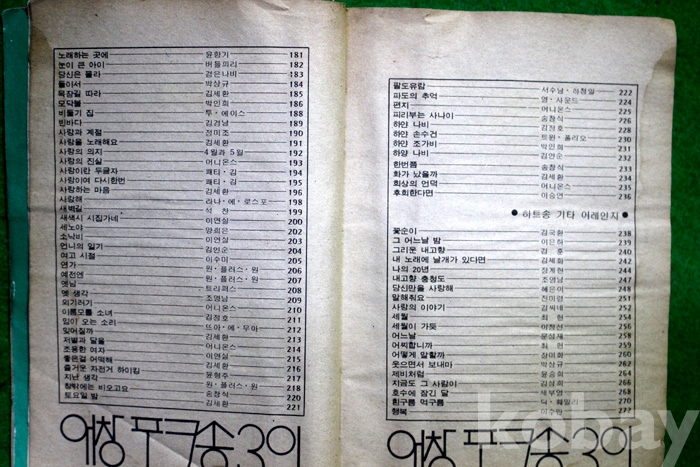 노래하는 곳에 윤항기 181
눈이 큰 아이 버들피리 182
당신은 몰라 검은나비 183
둘이서 박상규 184
목장길 따라 김세환 185
모닥불 박인희 186
비둘기 집 투·에이스 187
빈바다 김경남 189
사랑과 계절 정미조 190
사랑을 노래해요 김세환 191
사랑의 의지 4월과 5월 192
사랑의 진실 어니온스 193
사랑이란 두글자 패티·김 194
사랑이여 다시한번 패티·김 195
사랑하는 마음 김세환 196
사랑해 라나·에·로스포 198
새벽길 석 찬 199
새색시 시집가네 이연실 200
세노야 양희은 201
소낙비 이연실 202
언니의 일기 김인순 204
여고 시절 이수미 205
연가 원·플러스·원 206
예전엔 원·플러스·원 207
옛님 트리퍼스 208
옛 생각 조영남 209
외기러기 어니온스 210
이름모를 소녀 김정호 211
임이 오는 소리 뜨아·에·무아 212
잊어질까 김세환 213
저별과 달을 어니온스 214
조용한 여자 이연실 215
좋은걸 어떡해 김세환 216
즐거운 자전거 하이킹 윤형주 217
지난 생각
창밖에는 비오고요 원·플러스·원 218
송창식 220
토요일 밤 김세환 221
애창 포크송 3의
팔도유람 서수남·하청일 222
파도의 추억 영·사운드 224
편지 어니온스 225
피리부는 사나이 송창식 226
하얀 나비 김정호 228
하얀 손수건 트윈·폴리오 230
하얀 조가비 박인희 231
하양 나비 김인순 232
한번쯤 송창식 233
화가 났을까 김세환 234
회상의 언덕 어니온스 235
후회한다면 이승연 236
● 하트송 기타 어레인지 ●
꽃순이 김국환 238
그 어느날 밤 이은하 239
그리운 내고향 김 훈 240
내 노래에 날개가 있다면 김세화 242
나의 20년 장계현 244
내고향 충청도 조영남 247
당신만을 사랑해 혜은이 248
말해줘요 진미령 251
사랑의 이야기 김씨네 252
세월 최 헌 254
세월이 가듯 256
어느날 문정선 258
어찌합니까 최 헌 259
어떻게 말할까 장미화 260
웃으면서 보내마 박상규 262
제비처럼 윤승희 264
지금도 그 사람이 김상희 266
호수에 잠긴 달 세부엉 268
흰구름 먹구름 다·훼밀리 270
행복 이수만
애창 포크송 3의
kobay